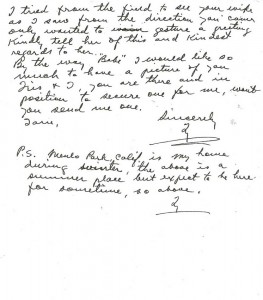 I tried from the field to see your wife
as I saw from the direction you came
only wanted to gesture a greeting
Kindly tell her of this and Kindest
regards to her.
By the way "Babe" I would like so
much to have a picture of you
Iris & I, you are there and in
position to secure one for me, wont
you send me one.
Sincerely
P.S. Menlo Park, Calif is my home
during winter, the above is a
summer place but expect to be here
for sometime, so above.